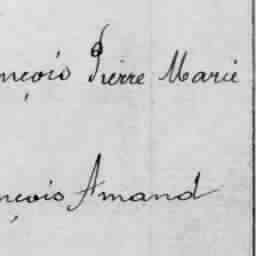 nçois Pierre Marie
nçois Amand